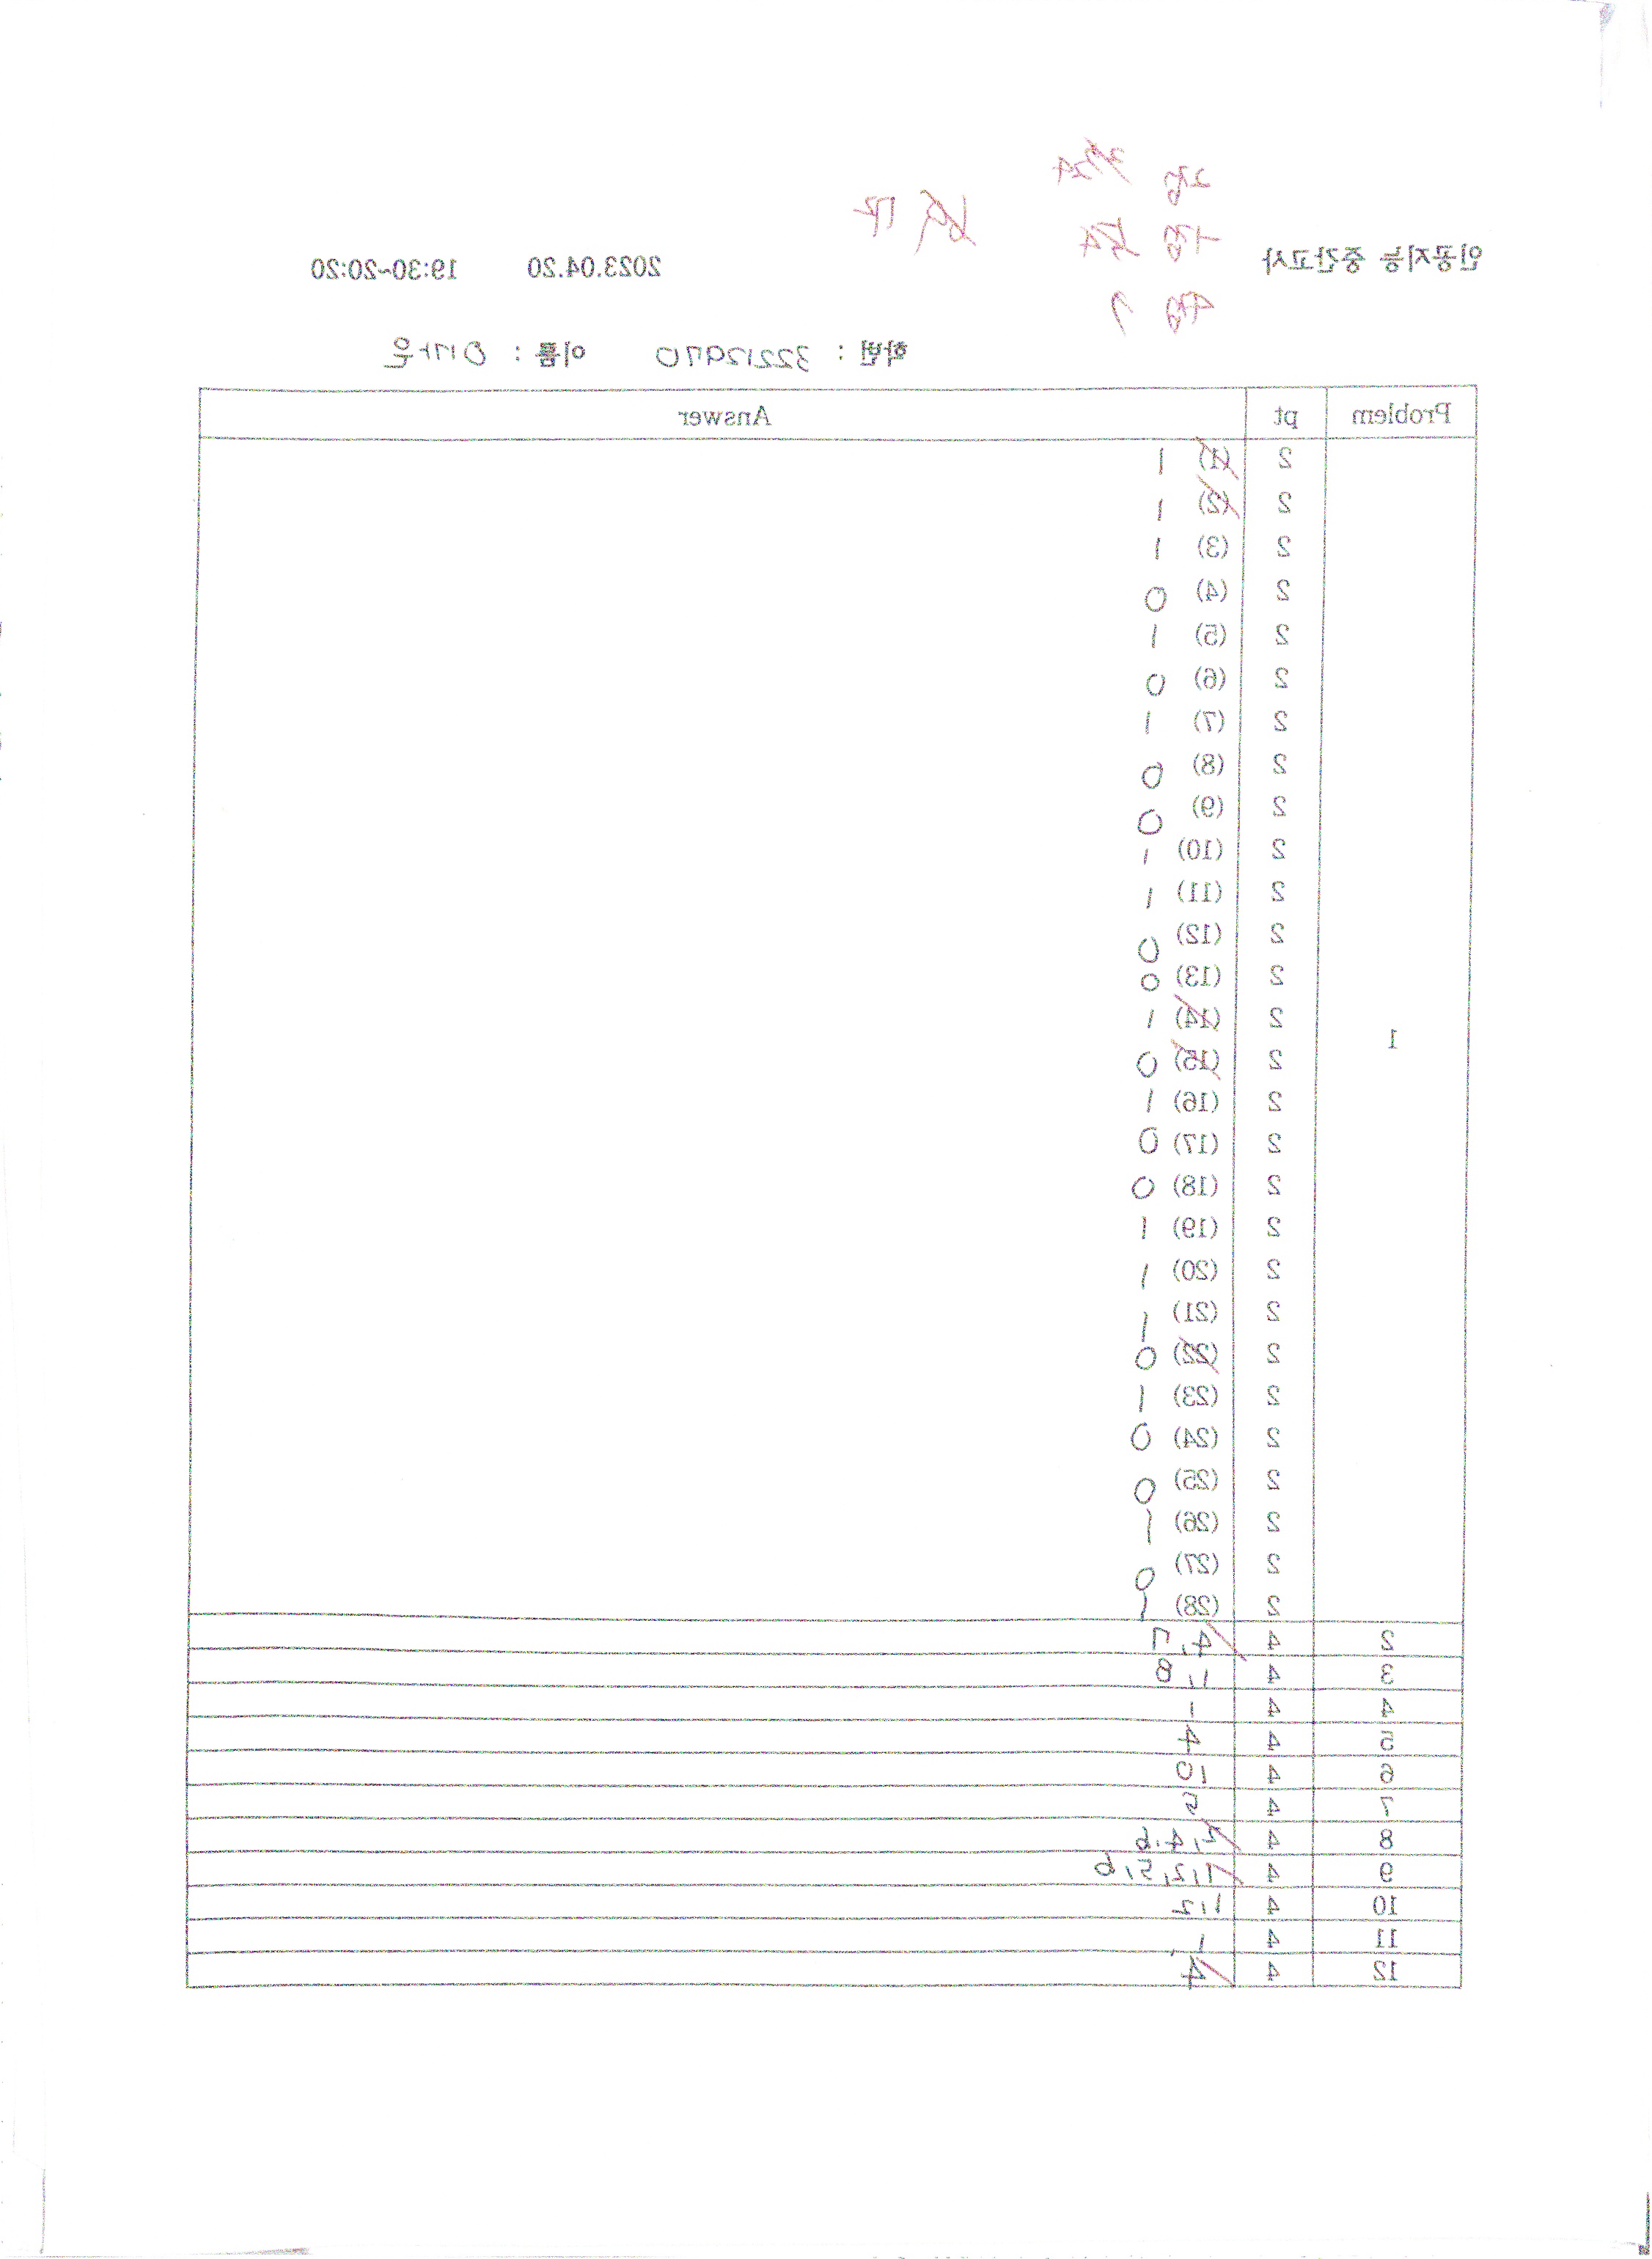 인공지능 중간고사 2023.04.20 19:30~20:20
학번 : 32212970 이름 : 이가은
Problem pt Answer
1
2 (1) 1
2 (2) 1
2 (3) 1
2 (4) 0
2 (5) 1
2 (6) 0
2 (7) 1
2 (8) 0
2 (9) 0
2 (10) 1
2 (11) 1
2 (12) 0
2 (13) 0
2 (14) 1
2 (15) 0
2 (16) 1
2 (17) 0
2 (18) 0
2 (19) 1
2 (20) 1
2 (21) 1
2 (22) 0
2 (23) 1
2 (24) 0
2 (25) 0
2 (26) 1
2 (27) 0
2 (28) 1
2 4 4, 7
3 4 1, 8
4 4 1
5 4 4
6 4 10
7 4 5
8 4 2, 4, 6
9 4 1, 2, 5, 6
10 4 1, 2
11 4 1
12 4 4